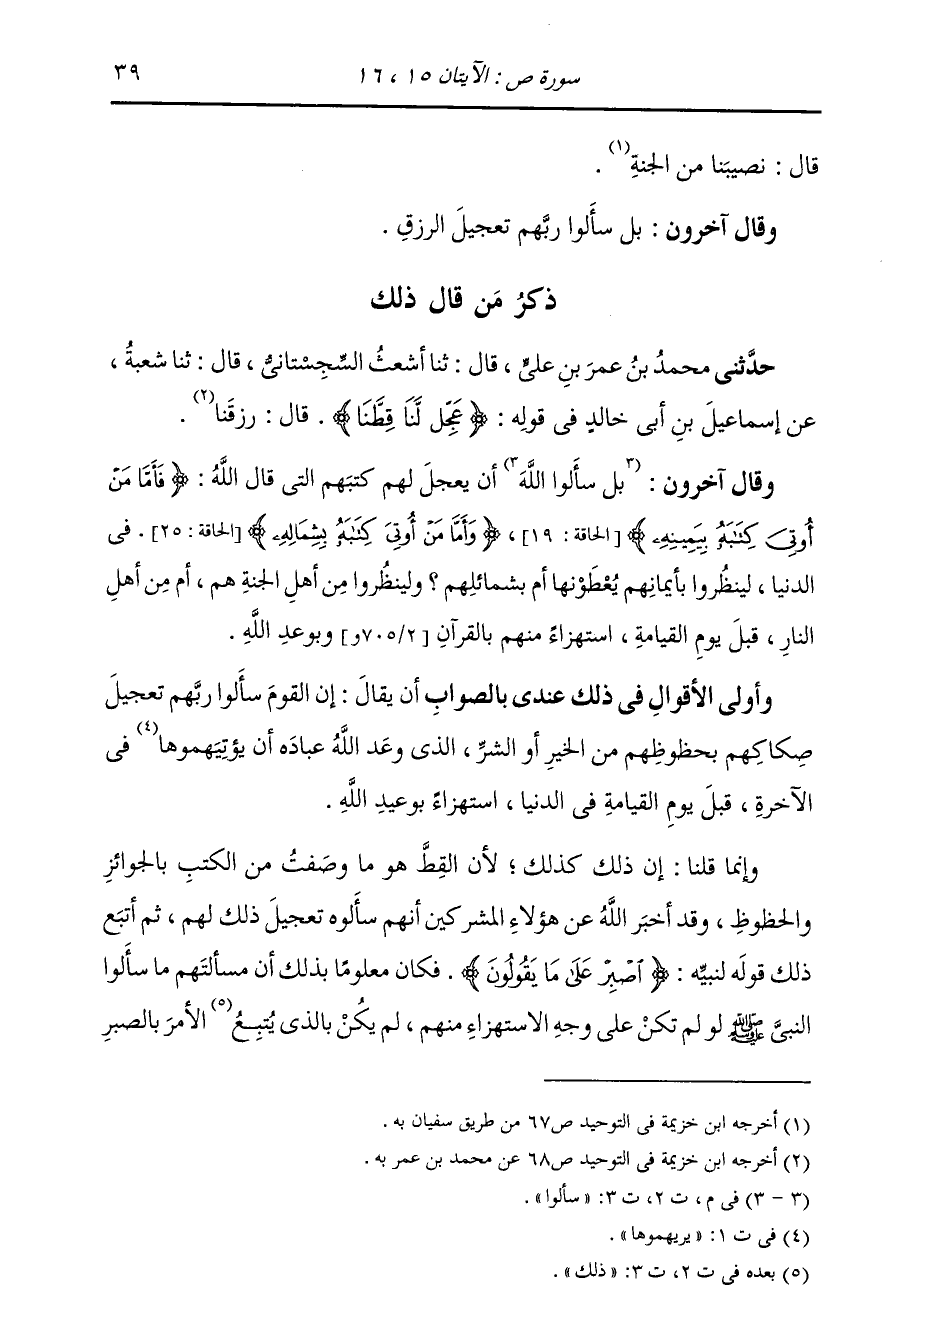 سورة ص : الآيتان ١٥ ، ١٦ ٣٩
قال : نصيبَنا من الجنةِ(١) .
وقال آخرون : بل سأَلوا ربَّهم تعجيلَ الرزقِ .
ذكرُ مَن قال ذلك
حدَّثنى محمدُ بنُ عمرَ بنِ علىٍّ ، قال : ثنا أشعثُ السِّجِسْتانىُّ ، قال : ثنا شعبةُ ،
عن إسماعيلَ بنِ أبى خالدٍ فى قولِه : ﴿ عَجِّل لَّنَا قِطَّنَا ﴾ . قال : رزقَنا(٢) .
وقال آخرون : (٣بل سأَلوا اللَّهَ٣) أن يعجلَ لهم كتبَهم التى قال اللَّهُ : ﴿ فَأَمَّا مَنْ
أُوتِىَ كِتَٰبَهُۥ بِيَمِينِهِۦ ﴾ [ الحاقة : ١٩ ] ، ﴿ وَأَمَّا مَنْ أُوتِىَ كِتَٰبَهُۥ بِشِمَالِهِۦ ﴾ [الحاقة : ٢٥] . فى
الدنيا ، لينظُروا بأيمانِهم يُعْطَوْنها أم بشمائلِهم ؟ ولينظُروا مِن أهلِ الجنةِ هم ، أم مِن أهلِ
النارِ ، قبلَ يومِ القيامةِ ، استهزاءً منهم بالقرآنِ [ ٧٠٥/٢و] وبوعدِ اللَّهِ .
وأولى الأقوالِ فى ذلك عندى بالصوابِ أن يقالَ : إن القومَ سأَلوا ربَّهم تعجيلَ
صِكاكِهم بحظوظِهم من الخيرِ أو الشرِّ ، الذى وعَد اللَّهُ عبادَه أن يؤتِيَهموها(٤) فى
الآخرةِ ، قبلَ يومِ القيامةِ فى الدنيا ، استهزاءً بوعيدِ اللَّهِ .
وإنما قلنا : إن ذلك كذلك ؛ لأن القِطَّ هو ما وصَفتُ من الكتبِ بالجوائزِ
والحظوظِ ، وقد أخبَر اللَّهُ عن هؤلاءِ المشركين أنهم سأَلوه تعجيلَ ذلك لهم ، ثم أتبَع
ذلك قولَه لنبيِّه : ﴿ ٱصْبِرْ عَلَىٰ مَا يَقُولُونَ ﴾ . فكان معلومًا بذلك أن مسألتَهم ما سأَلوا
النبىَّ ﷺ لو لم تكنْ على وجهِ الاستهزاءِ منهم ، لم يكُنْ بالذى يُتبِعُ(٥) الأمرَ بالصبرِ
(١) أخرجه ابن خزيمة فى التوحيد ص٦٧ من طريق سفيان به .
(٢) أخرجه ابن خزيمة فى التوحيد ص٦٨ عن محمد بن عمر به .
(٣ - ٣) فى م ، ت ٢، ت ٣: « سألوا» .
(٤) فى ت ١: « يريهموها» .
(٥) بعده فى ت ٢، ت ٣: « ذلك» .